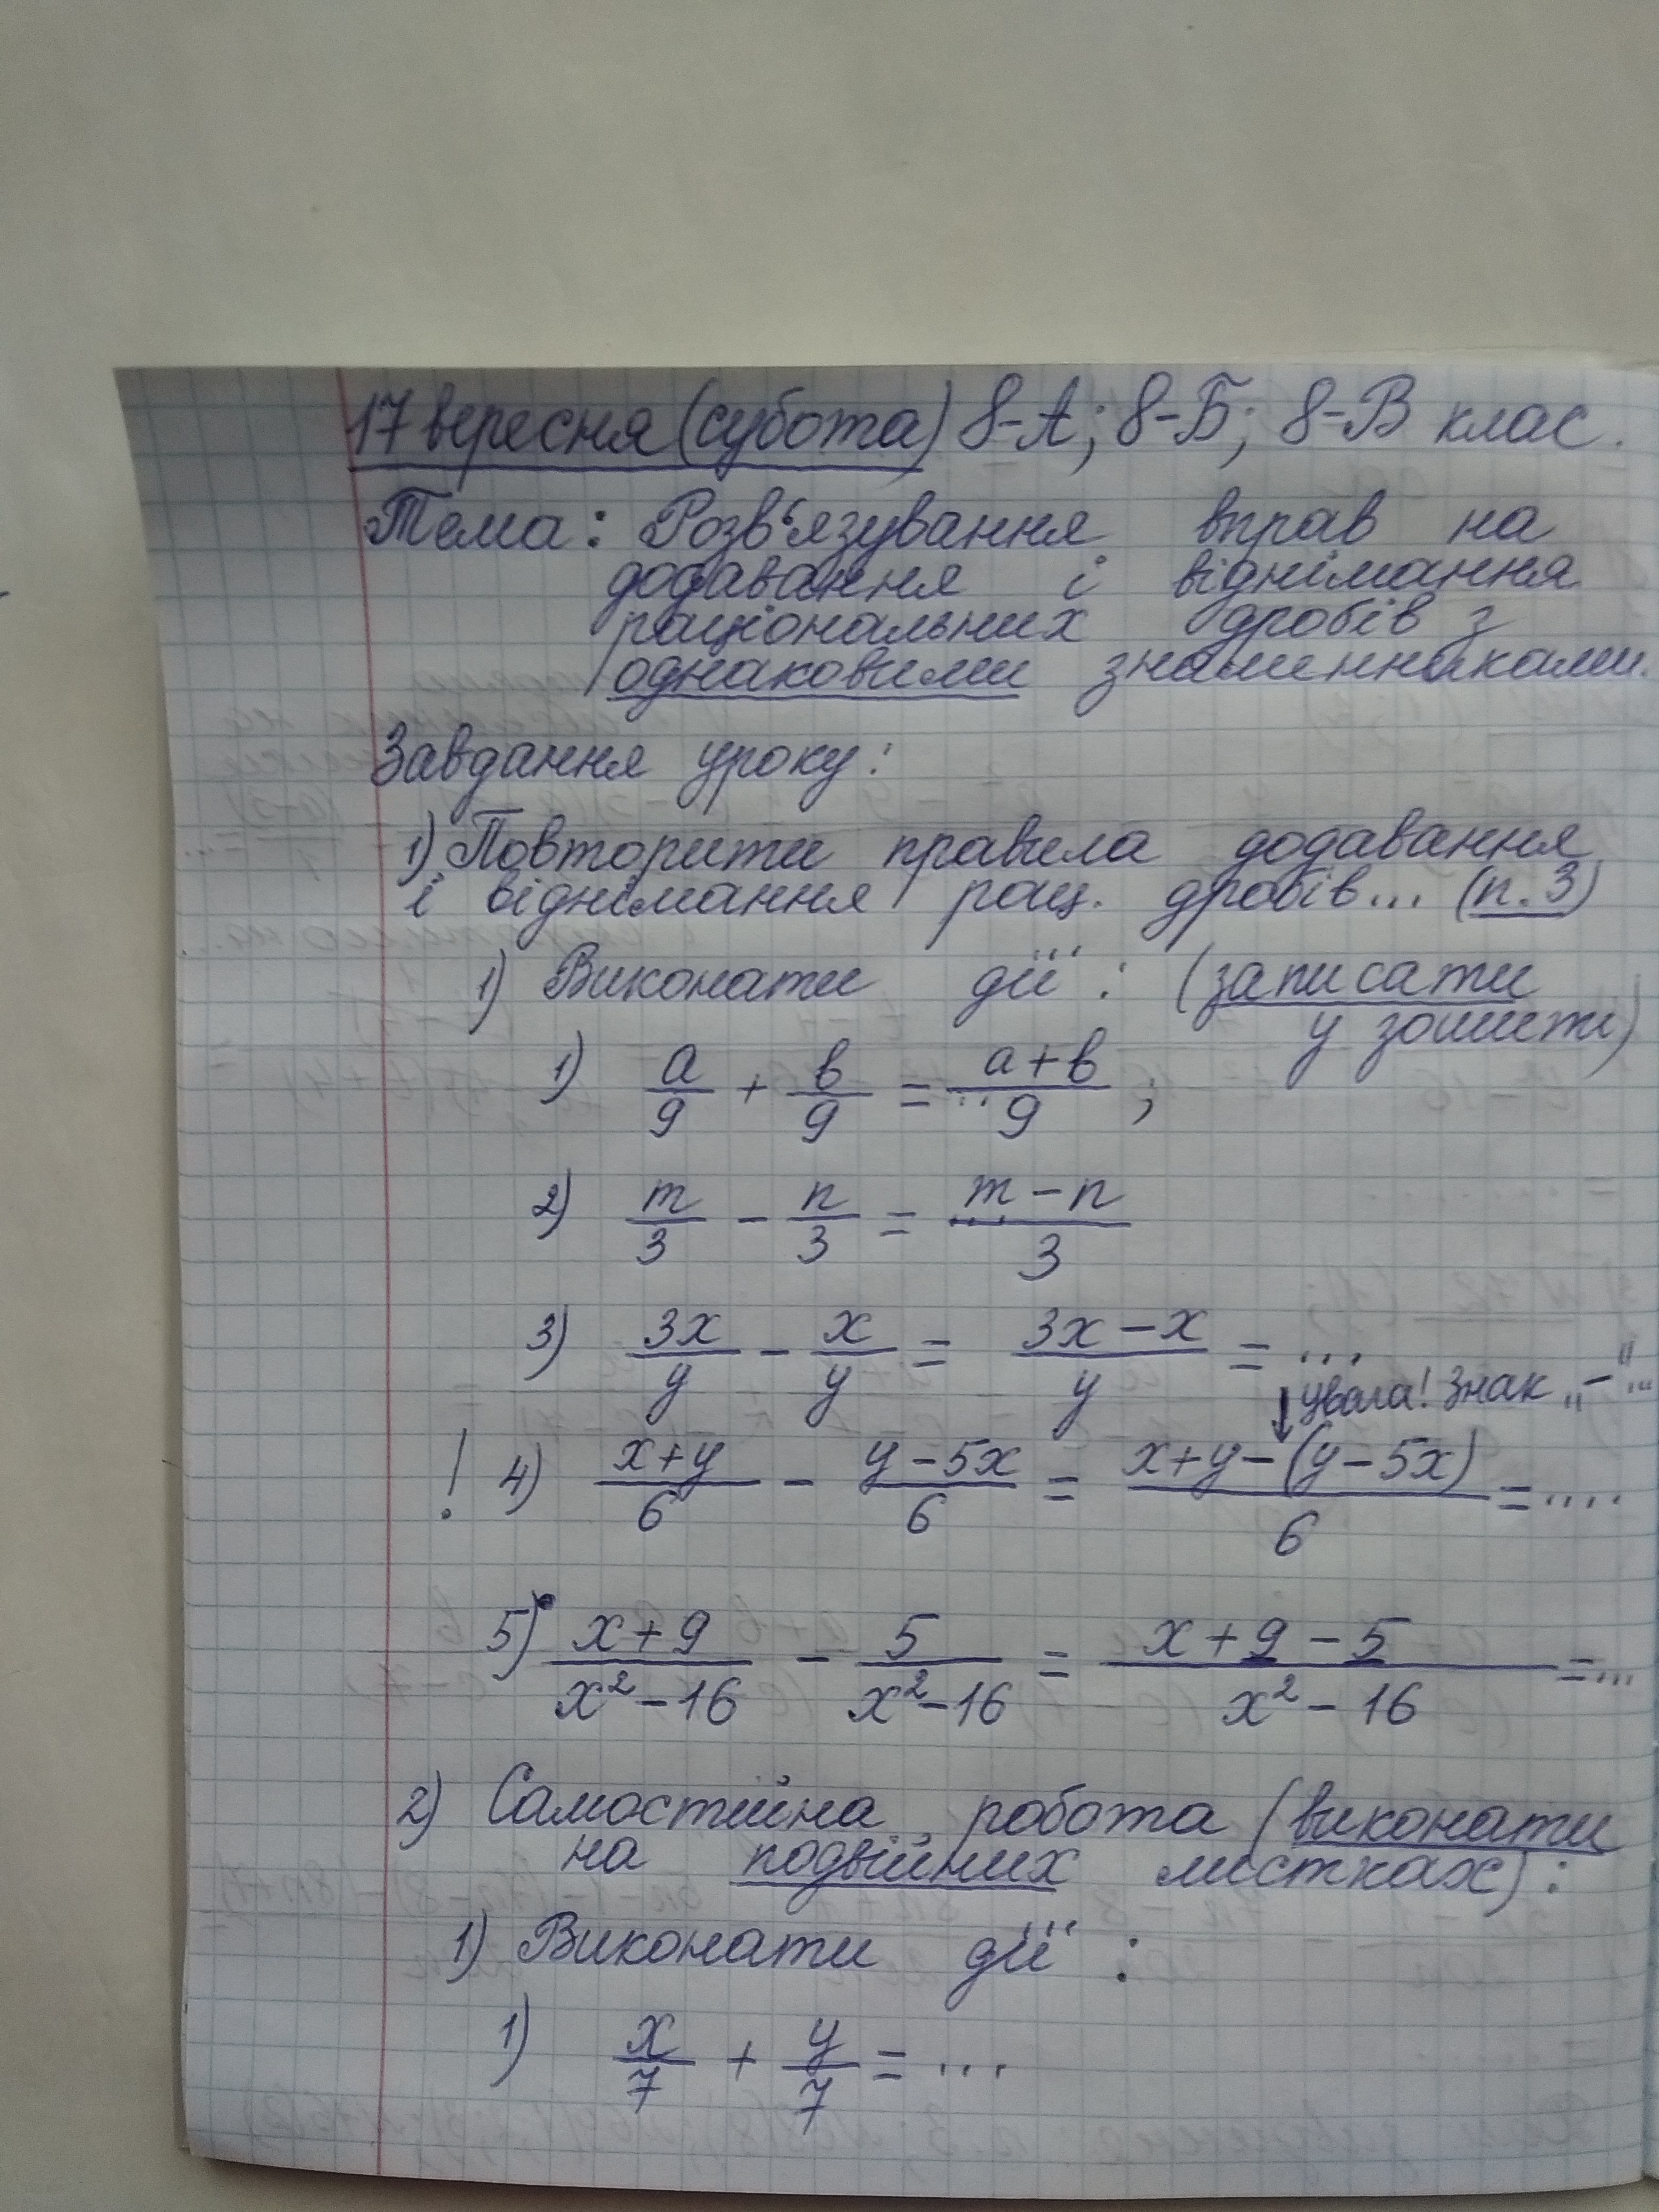 17 вересня (субота) 8-А; 8-Б; 8-В клас.
Тема: Розв'язування вправ на
додавання і віднімання
раціональних дробів з
однаковими знаменниками.
Завдання уроку:
1) Повторити правила додавання
і віднімання рац. дробів... (п. 3)
1) Виконати дії: (записати
у зошиті)
1) a/9 + b/9 = (a+b)/9;
2) m/3 - n/3 = (m-n)/3
3) 3x/y - x/y = (3x-x)/y = ...
↓ увага! Знак „-"...
! 4) (x+y)/6 - (y-5x)/6 = (x+y-(y-5x))/6 = ....
5) (x+9)/(x²-16) - 5/(x²-16) = (x+9-5)/(x²-16) = ...
2) Самостійна робота (виконати
на подвійних листках):
1) Виконати дії:
1) x/7 + y/7 = ...